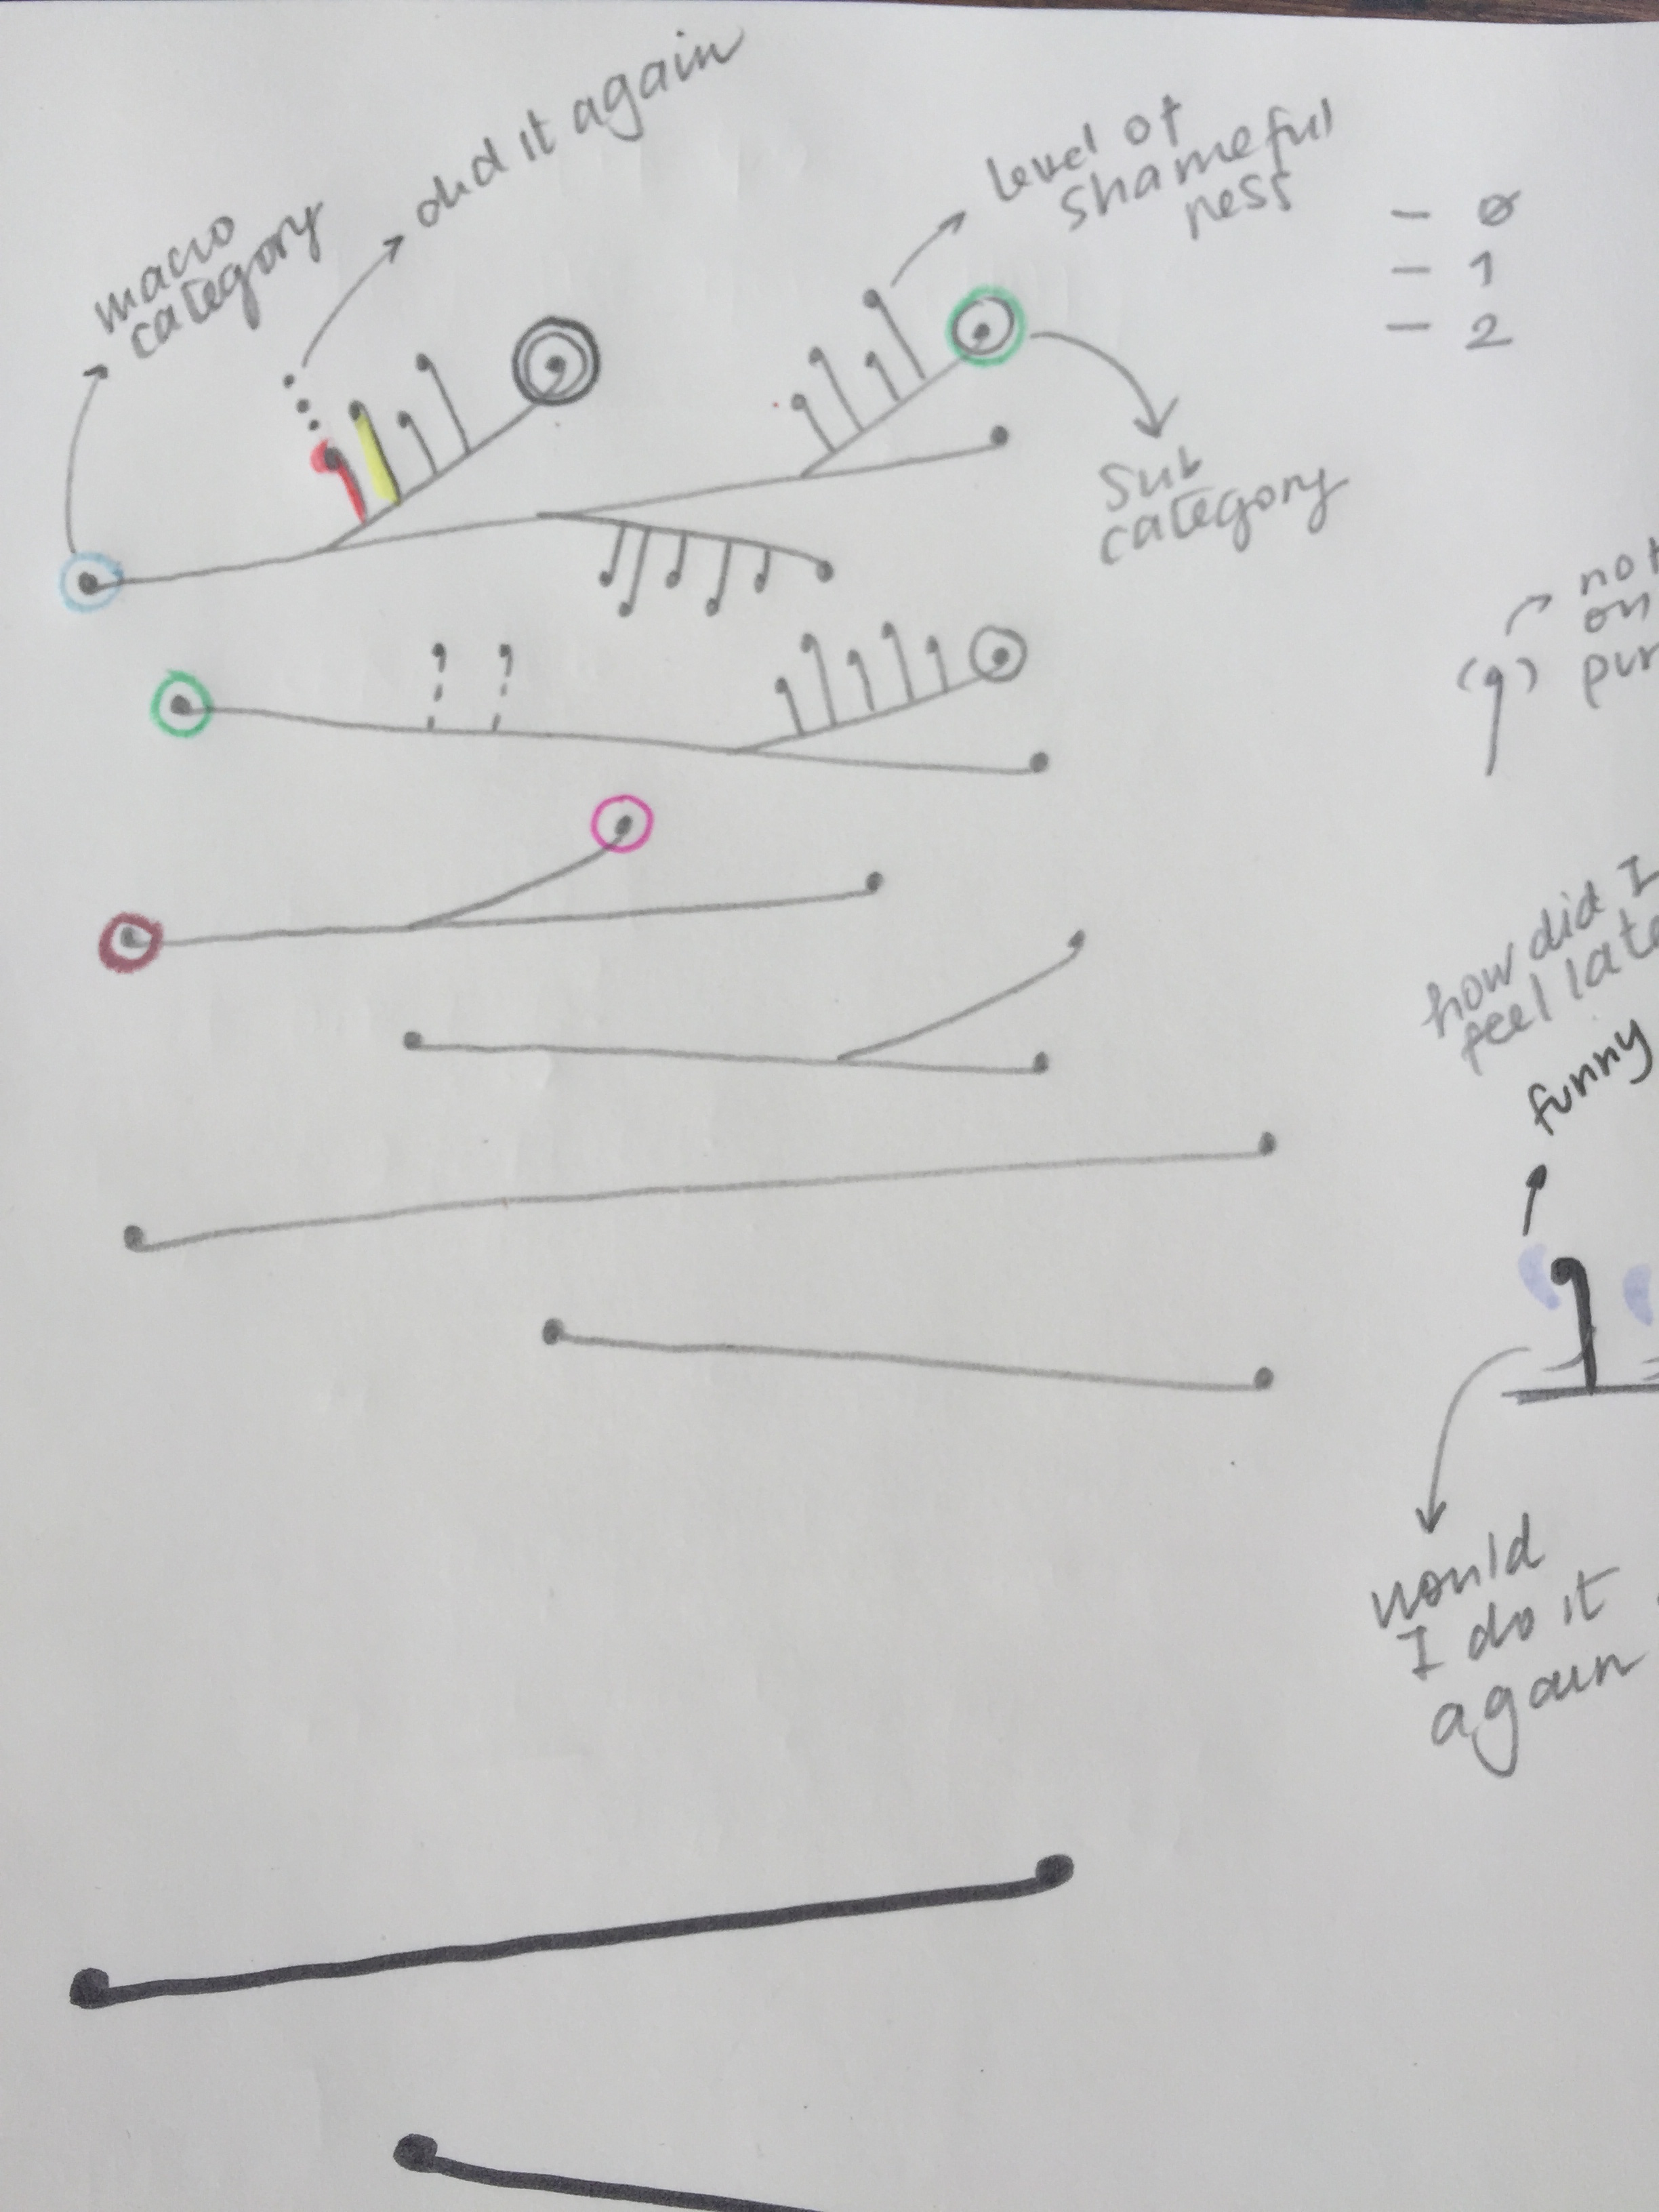 macro
category
did it again
level of
shameful
ness
- 0
- 1
- 2
sub
category
not
on
how did I
feel late
funny
would
I do it
again